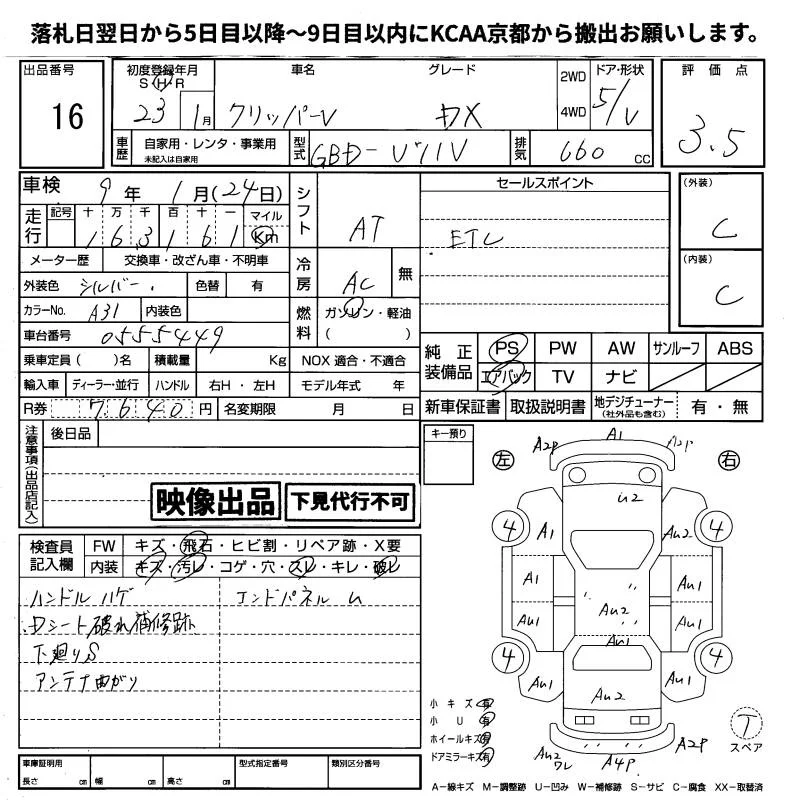 落札日翌日から5日目以降〜9日目以内にKCAA京都から搬出お願いします。
出品番号
16
初度登録年月
S H R
23 1月
車名
クリッパーV
グレード
DX
2WD
4WD
ドア・形状
5/V
評価点
3.5
車歴
自家用・レンタ・事業用
未記入は自家用
型式
GBD-U71V
排気
660 CC
車検
9年 1月(24日)
走行
記号 十 万 千 百 十 一 マイル
1 6 3 1 6 1 Km
メーター歴 交換車・改ざん車・不明車
外装色 シルバー 色替 有
カラーNo. A31 内装色
車台番号 0555449
乗車定員( )名 積載量 Kg
輸入車 ディーラー・並行 ハンドル 右H・左H
R券 7640円 名変期限 月 日
シフト
AT
冷房
AC 無
燃料
ガソリン・軽油
( )
NOX 適合・不適合
モデル年式 年
セールスポイント
ETC
(外装)
C
(内装)
C
純正装備品
PS PW AW サンルーフ ABS
エアバック TV ナビ
新車保証書 取扱説明書 地デジチューナー(社外品も含む) 有・無
注意事項(出品店記入)
後日品
映像出品
下見代行不可
キー預り
検査員記入欄
FW キズ・飛石・ヒビ割・リペア跡・X要
内装 キズ・汚レ・コゲ・穴・スレ・キレ・破レ
ハンドルハゲ
エンドパネルU
Dシート破れ補修跡
下廻りS
アンテナ曲がり
左
右
A2P A1 A2P
U2
4 A1 AU2 4
A1 AU1
AU2
AU1 AU1
AU1
4 AU1 AU2 AU1 4
AU2 ワレ A4P A2P
T
スペア
小キズ 有
小U 有
ホイールキズ 有
ドアミラーキズ 有
車庫証明用
長さ cm 幅 cm 高さ cm
型式指定番号
類別区分番号
A－線キズ M－調整跡 U－凹み W－補修跡 S－サビ C－腐食 XX－取替済